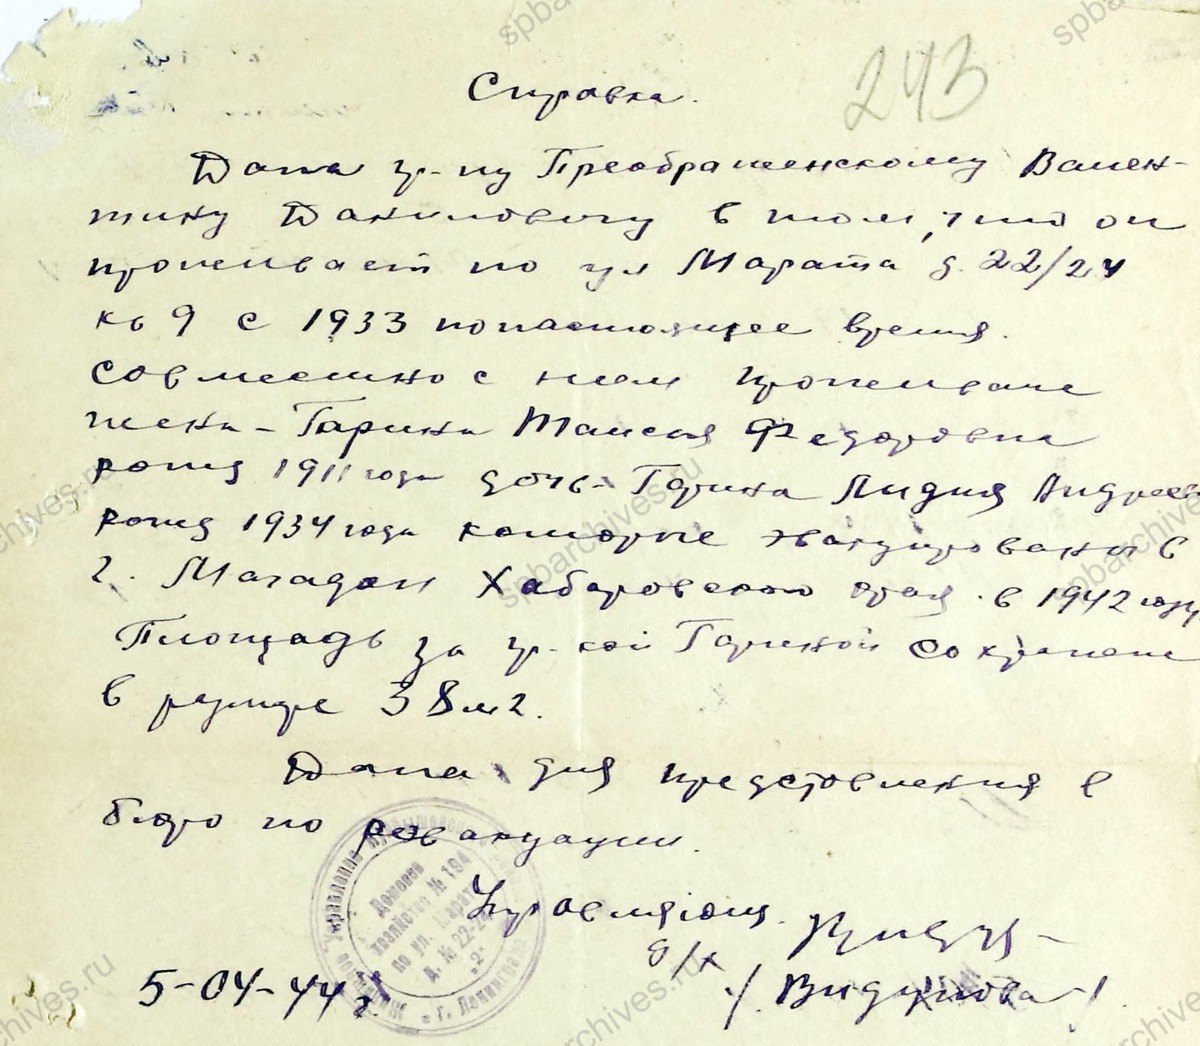 Справка.
243
Дана гр-ну Преображенскому Вален-
тину Даниловичу в том, что он
проживает по ул Марата д. 22/24
кв 9 с 1933 по настоящее время.
Совместно с ним проживали
жена - Гарина Таисья Федоровна
рожд 1911 года дочь - Гарина Лидия Андреев
рожд 1934 года которые эвакуированы в
г. Магадан Хабаровского края в 1942 году
Площадь за гр-кой Гариной сохранена
в размере 38 м2.
Дана для представления в
бюро по реэвакуации.
Управляющ.
д/х
/ Видунова /
5-04-44 г.
Домовое
хозяйство № 194
по ул. Марата
д. № 22-24
"2"
г. Ленинграда
spbarchives.ru